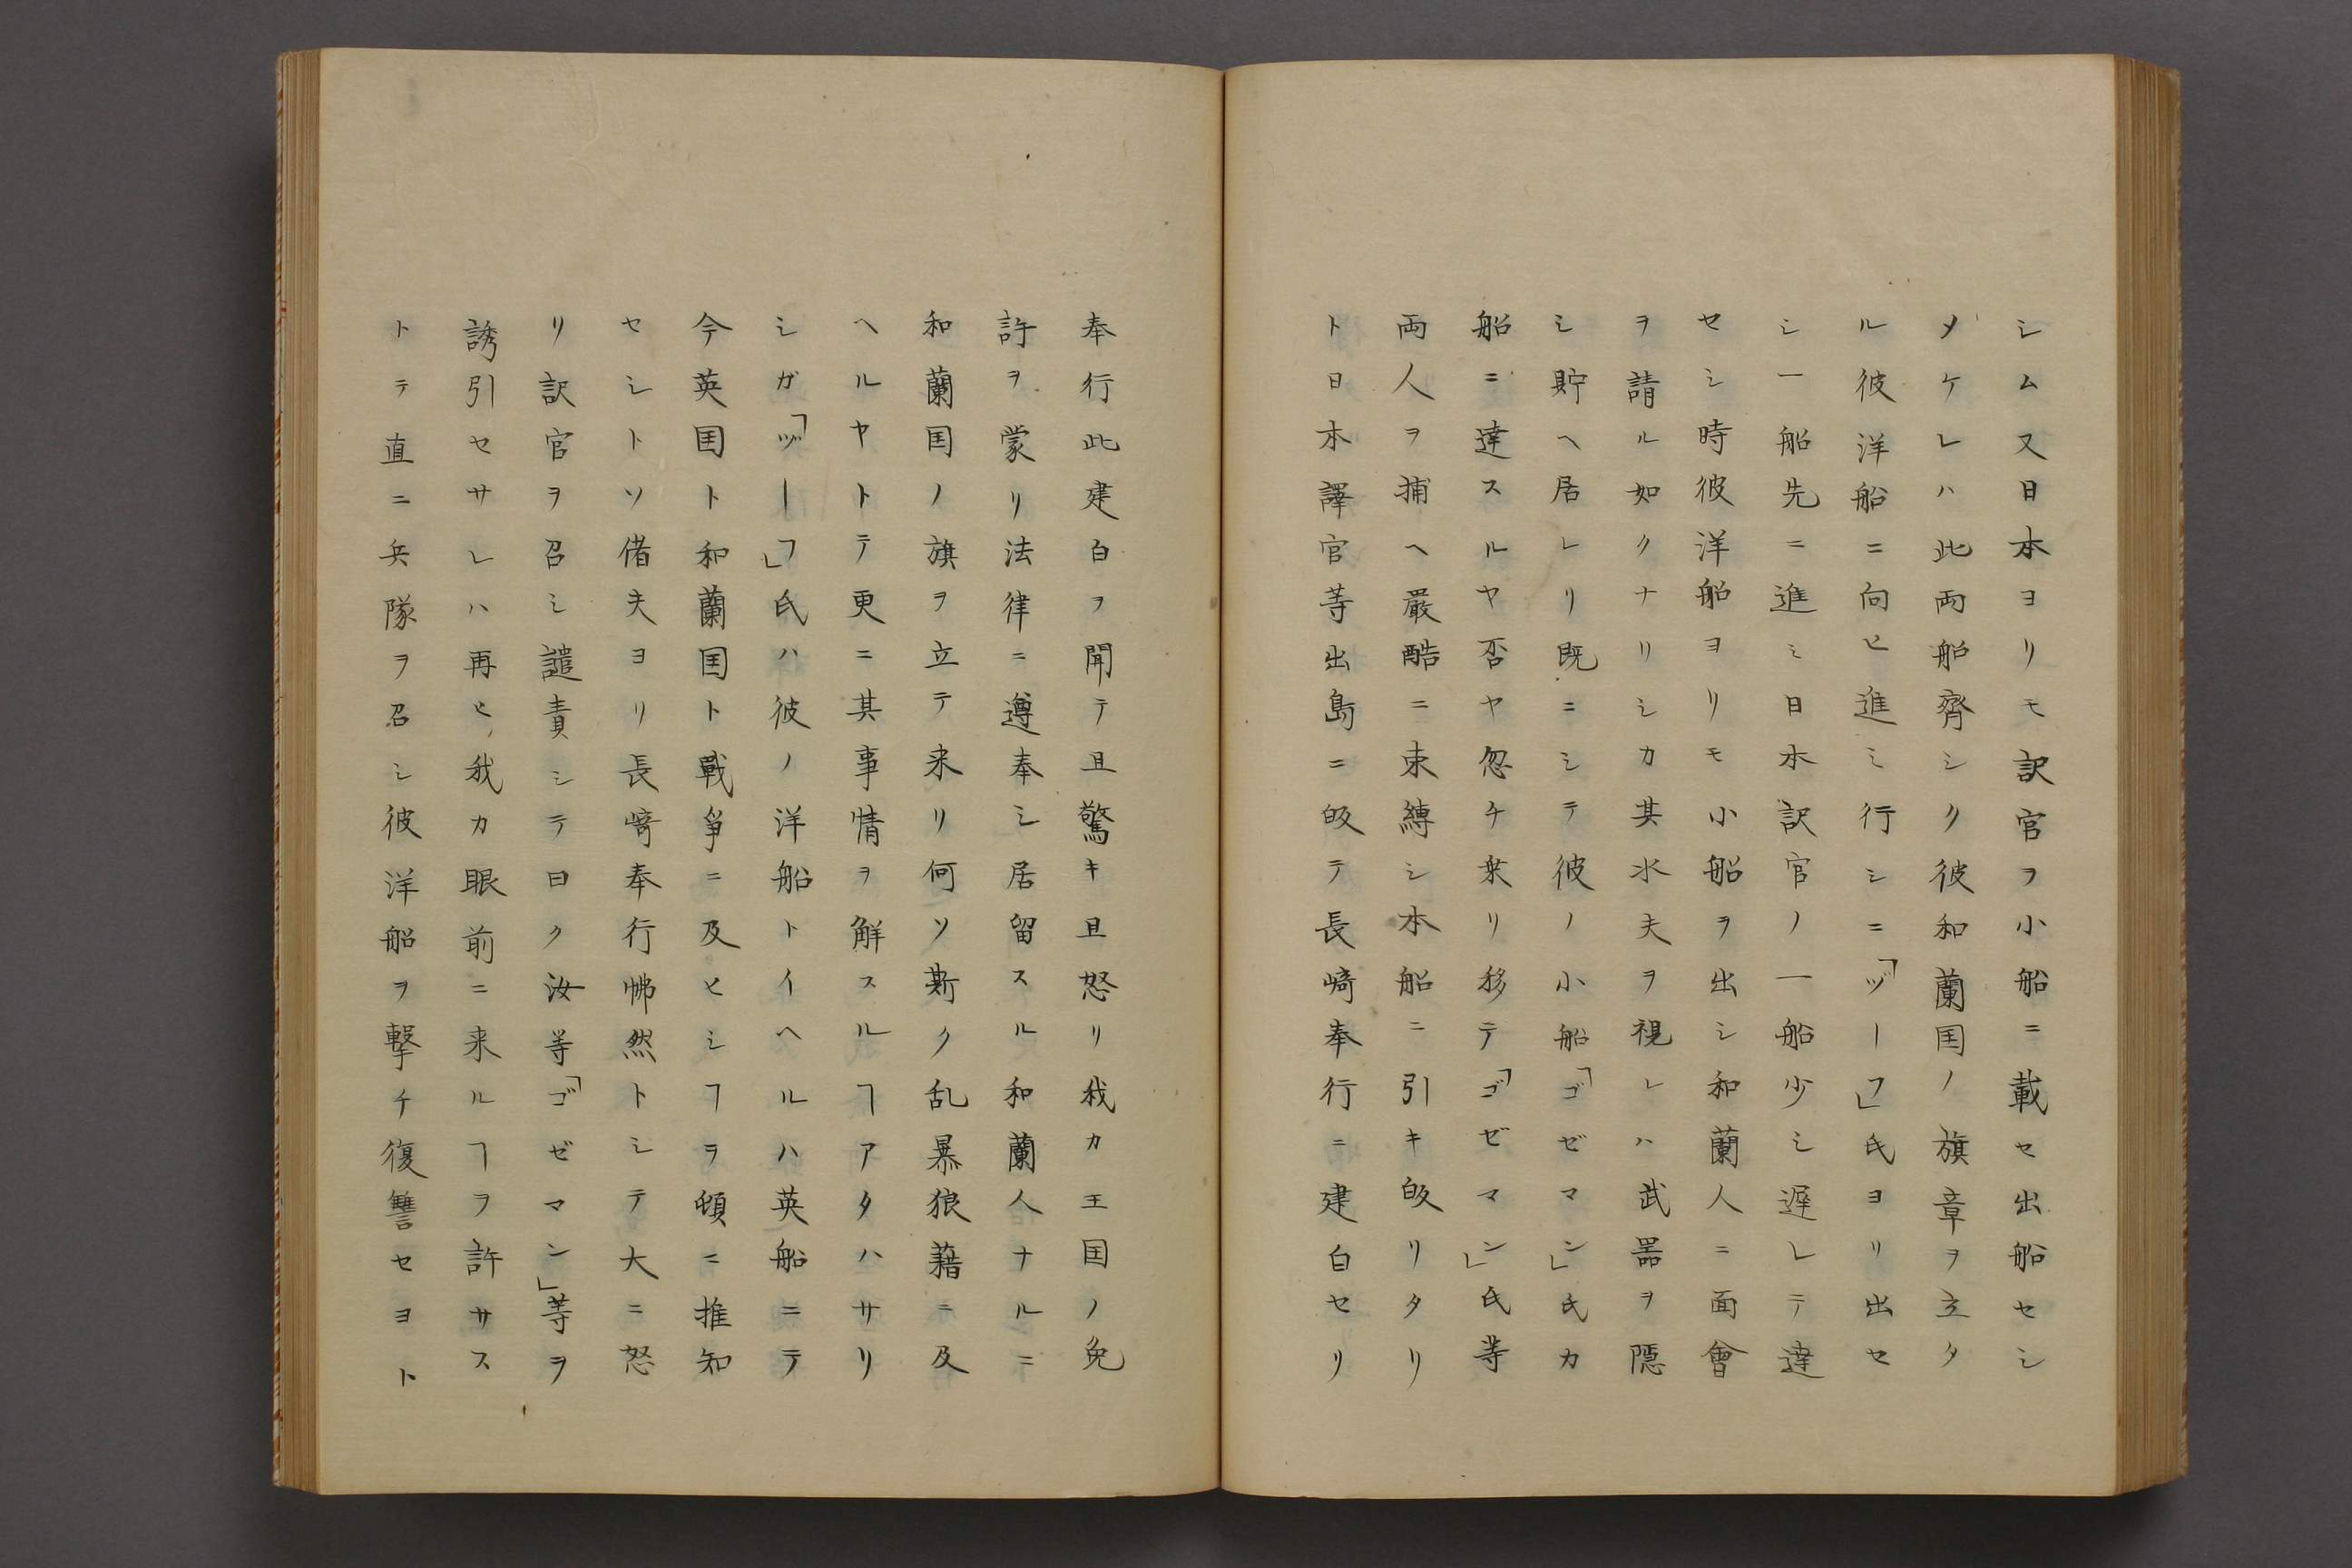 シム又日本ヨリモ訳官ヲ小船ニ載セ出船セシ
メケレハ此両船齊シク彼和蘭国ノ旗章ヲ立タ
ル彼洋船ニ向ヒ進ミ行シニ「ヅーフ」氏ヨリ出セ
シ一船先ニ進ミ日本訳官ノ一船少シ遅レテ達
セシ時彼洋船ヨリモ小船ヲ出シ和蘭人ニ面會
ヲ請ル如クナリシカ其水夫ヲ視レハ武噐ヲ隠
シ貯ヘ居レリ既ニシテ彼ノ小船「ゴゼマン」氏カ
船ニ達スルヤ否ヤ忽チ乗リ移テ「ゴゼマン」氏等
両人ヲ捕ヘ嚴酷ニ束縛シ本船ニ引キ皈リタリ
ト日本譯官等出島ニ皈テ長﨑奉行ニ建白セリ
奉行此建白ヲ聞テ且驚キ且怒リ我カ王国ノ免
許ヲ蒙リ法律ニ遵奉シ居留スル和蘭人ナルニ
和蘭国ノ旗ヲ立テ来リ何ソ斯ク乱暴狼藉ニ及
ヘルヤトテ更ニ其事情ヲ解スルヿアタハサリ
シガ「ヅーフ」氏ハ彼ノ洋船トイヘルハ英船ニテ
今英国ト和蘭国ト戰爭ニ及ヒシヿヲ頓ニ推知
セシトソ偖夫ヨリ長﨑奉行怫然トシテ大ニ怒
リ訳官ヲ召シ譴責シテ曰ク汝等「ゴゼマン」等ヲ
誘引セサレハ再ヒ我カ眼前ニ来ルヿヲ許サス
トテ直ニ兵隊ヲ召シ彼洋船ヲ撃チ復讐セヨト